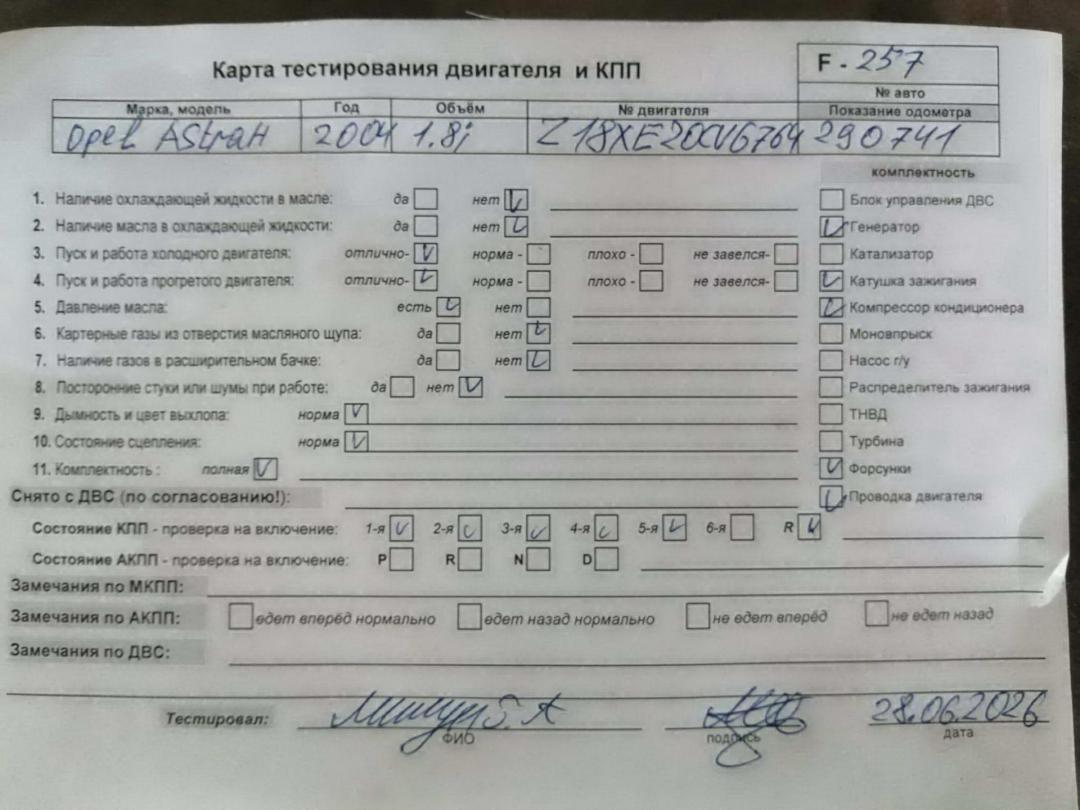 Карта тестирования двигателя и КПП
F - 257
№ авто
Марка, модель Год Объём № двигателя Показание одометра
Opel Astra H 2004 1.8i Z18XE20CV6764 290741
комплектность
1. Наличие охлаждающей жидкости в масле: да нет
Блок управления ДВС
2. Наличие масла в охлаждающей жидкости: да нет
Генератор
3. Пуск и работа холодного двигателя: отлично- норма - плохо - не завелся-
Катализатор
4. Пуск и работа прогретого двигателя: отлично- норма - плохо - не завелся-
Катушка зажигания
5. Давление масла: есть нет
Компрессор кондиционера
6. Картерные газы из отверстия масляного щупа: да нет
Моновпрыск
7. Наличие газов в расширительном бачке: да нет
Насос г/у
8. Посторонние стуки или шумы при работе: да нет
Распределитель зажигания
9. Дымность и цвет выхлопа: норма
ТНВД
10. Состояние сцепления: норма
Турбина
11. Комплектность : полная
Форсунки
Снято с ДВС (по согласованию!):
Проводка двигателя
Состояние КПП - проверка на включение: 1-я 2-я 3-я 4-я 5-я 6-я R
Состояние АКПП - проверка на включение: P R N D
Замечания по МКПП:
Замечания по АКПП: едет вперёд нормально едет назад нормально не едет вперёд не едет назад
Замечания по ДВС:
Тестировал: 28.06.2026
ФИО подпись дата